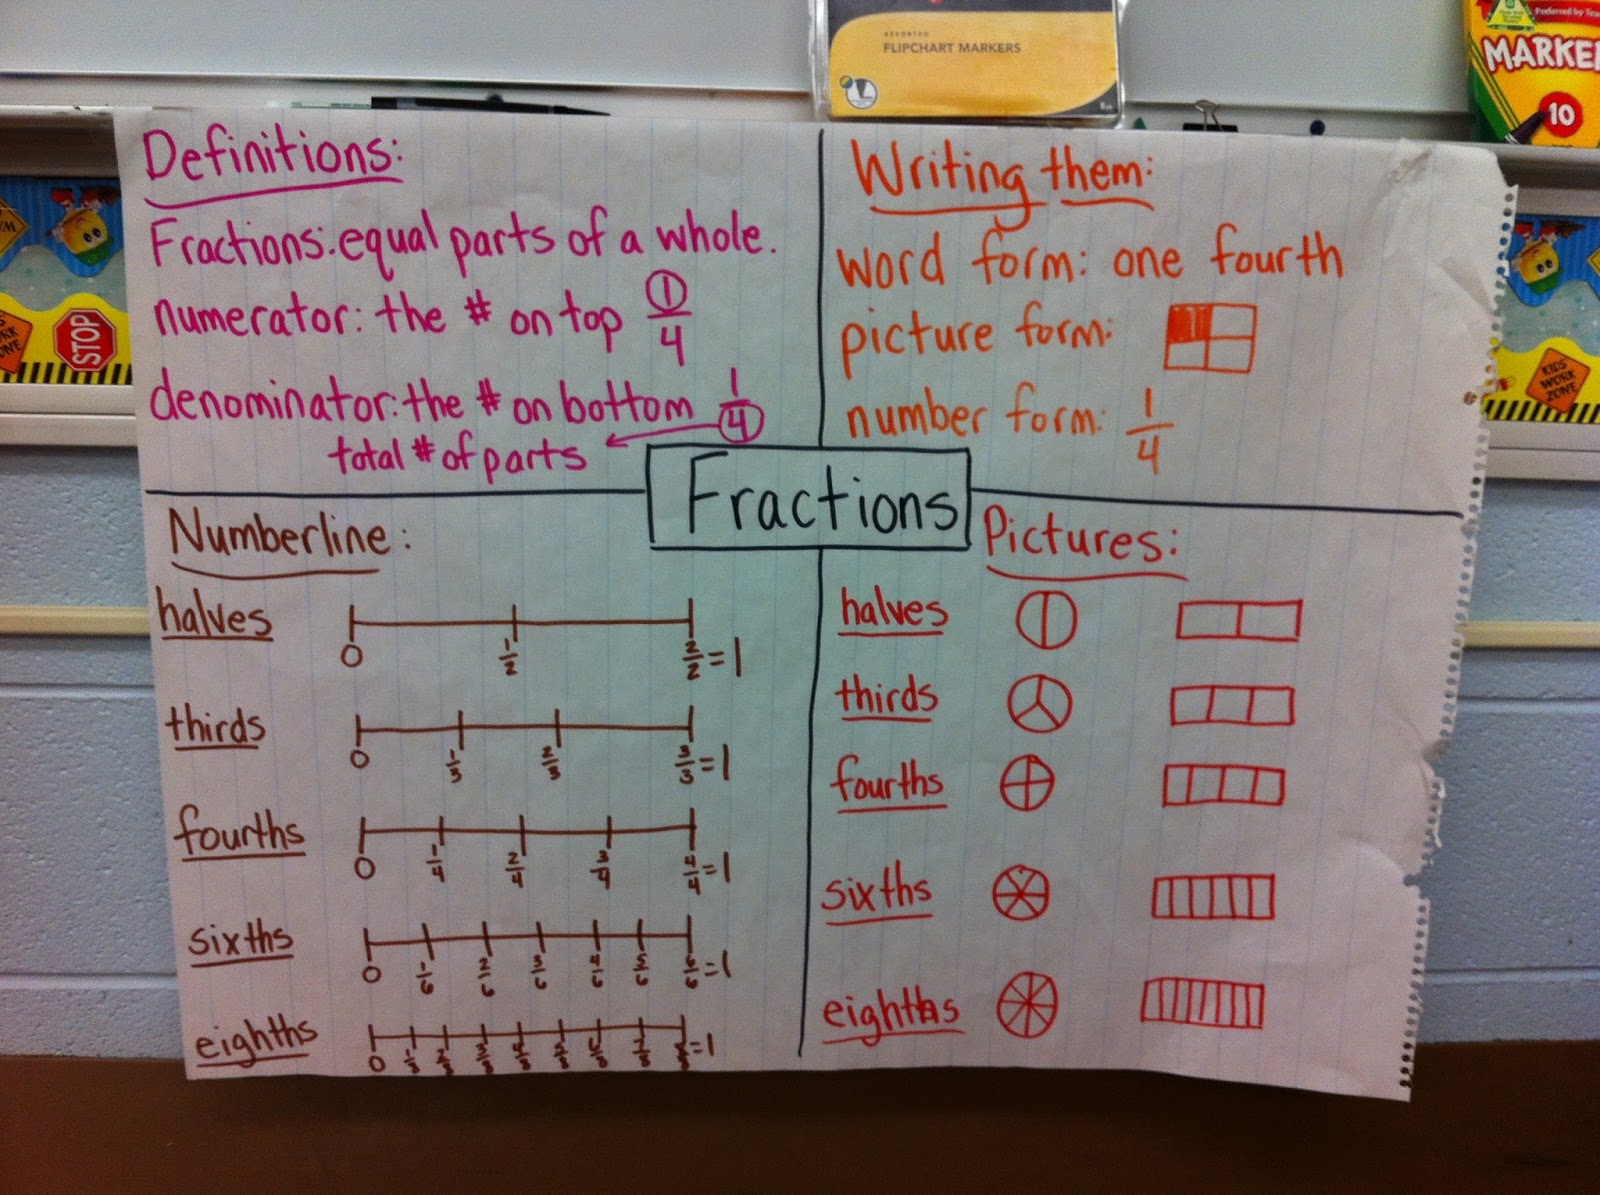 ASSORTED
FLIPCHART MARKERS
8 ct.
Preferred by Tea
MARKE
10
STOP
KIDS
WORK
ZONE
Definitions:
Fractions: equal parts of a whole.
numerator: the # on top 1/4
denominator: the # on bottom 1/4
total # of parts
Writing them:
word form: one fourth
picture form:
number form: 1/4
Fractions
Numberline:
halves
0 1/2 2/2 = 1
thirds
0 1/3 2/3 3/3 = 1
fourths
0 1/4 2/4 3/4 4/4 = 1
sixths
0 1/6 2/6 3/6 4/6 5/6 6/6 = 1
eighths
0 1/8 2/8 3/8 4/8 5/8 6/8 7/8 8/8 = 1
Pictures:
halves
thirds
fourths
sixths
eighths